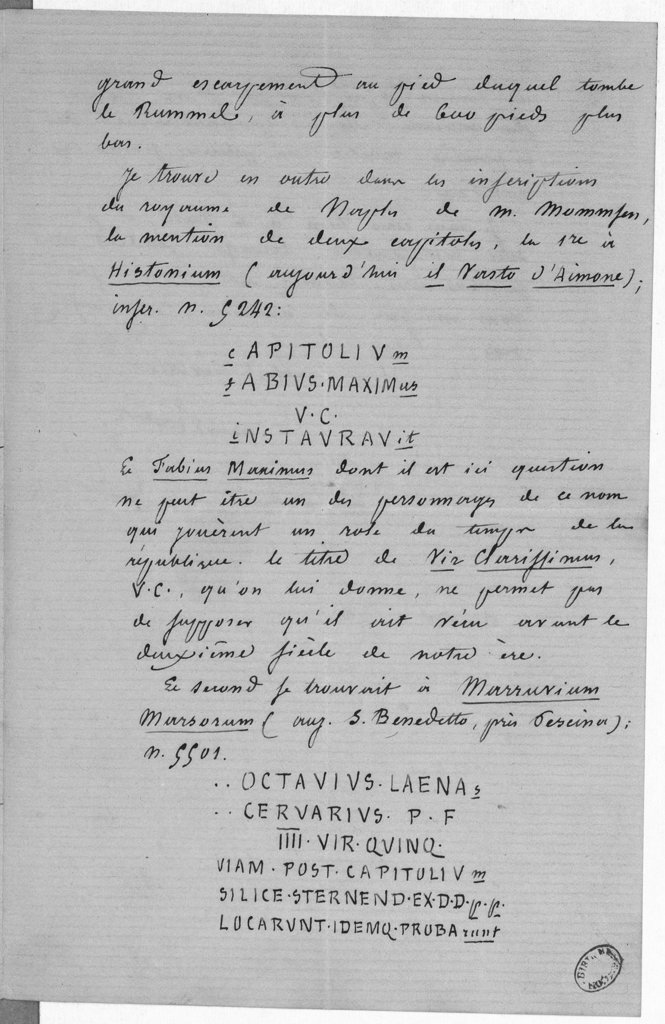 grand escarpement au pied duquel tombe
le Rummel, à plus de 600 pieds plus
bas.
Je trouve en outre dans les inscriptions
du royaume de Naples de M. Mommsen,
la mention de deux capitoles, la 1re à
Histonium (aujourd'hui il Vasto d'Aimone);
inscr. n. 5242:
cAPITOLIVm
fABIVS·MAXIMus
V·C·
iNSTAVRAVit
Le Fabius Maximus dont il est ici question
ne peut être un des personnages de ce nom
qui jouèrent un role du temps de la
république. Le titre de Vir Clarissimus,
V.C., qu'on lui donne, ne permet pas
de supposer qu'il ait vécu avant le
deuxième siècle de notre ère.
Le second se trouvait à Marruvium
Marsorum (auj. S. Benedetto, près Pescina);
n. 5501.
.. OCTAVIVS·LAENAs
.. CERVARIVS· P· F
IIII·VIR·QVINQ·
VIAM·POST·CAPITOLIVm
SILICE·STERNEND·EX·D·D·p·p·
LOCARVNT·IDEMQ·PROBArunt